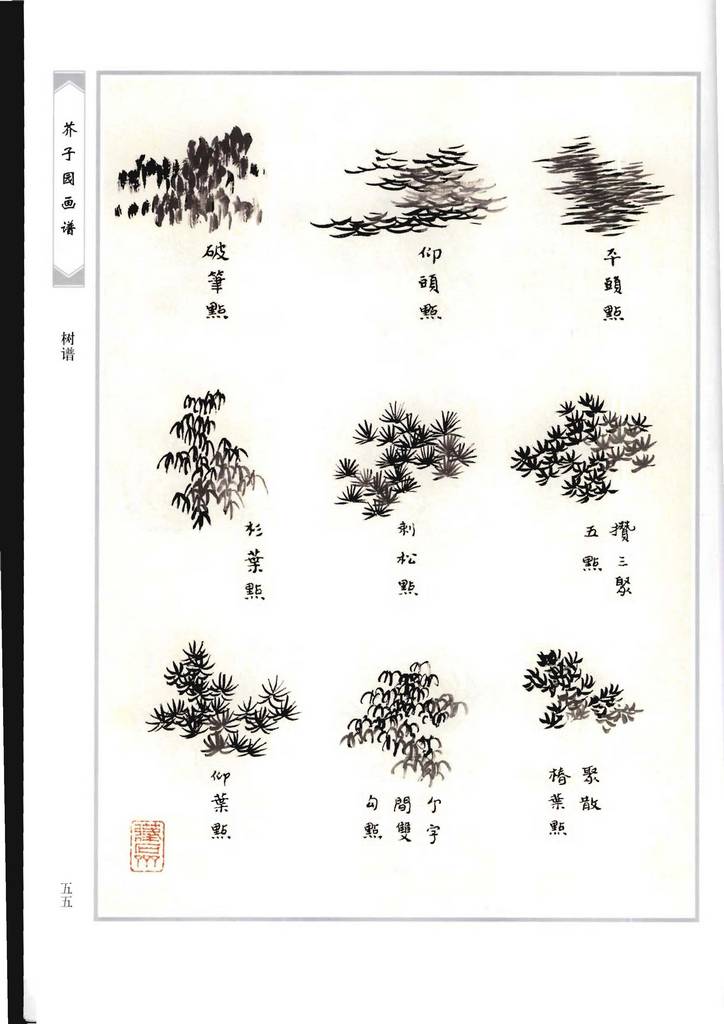 芥子园画谱
树谱
平頭點
仰頭點
破筆點
攢三聚
五點
刺松點
杉葉點
聚散
椿葉點
个字
間雙
勾點
仰葉點
五五